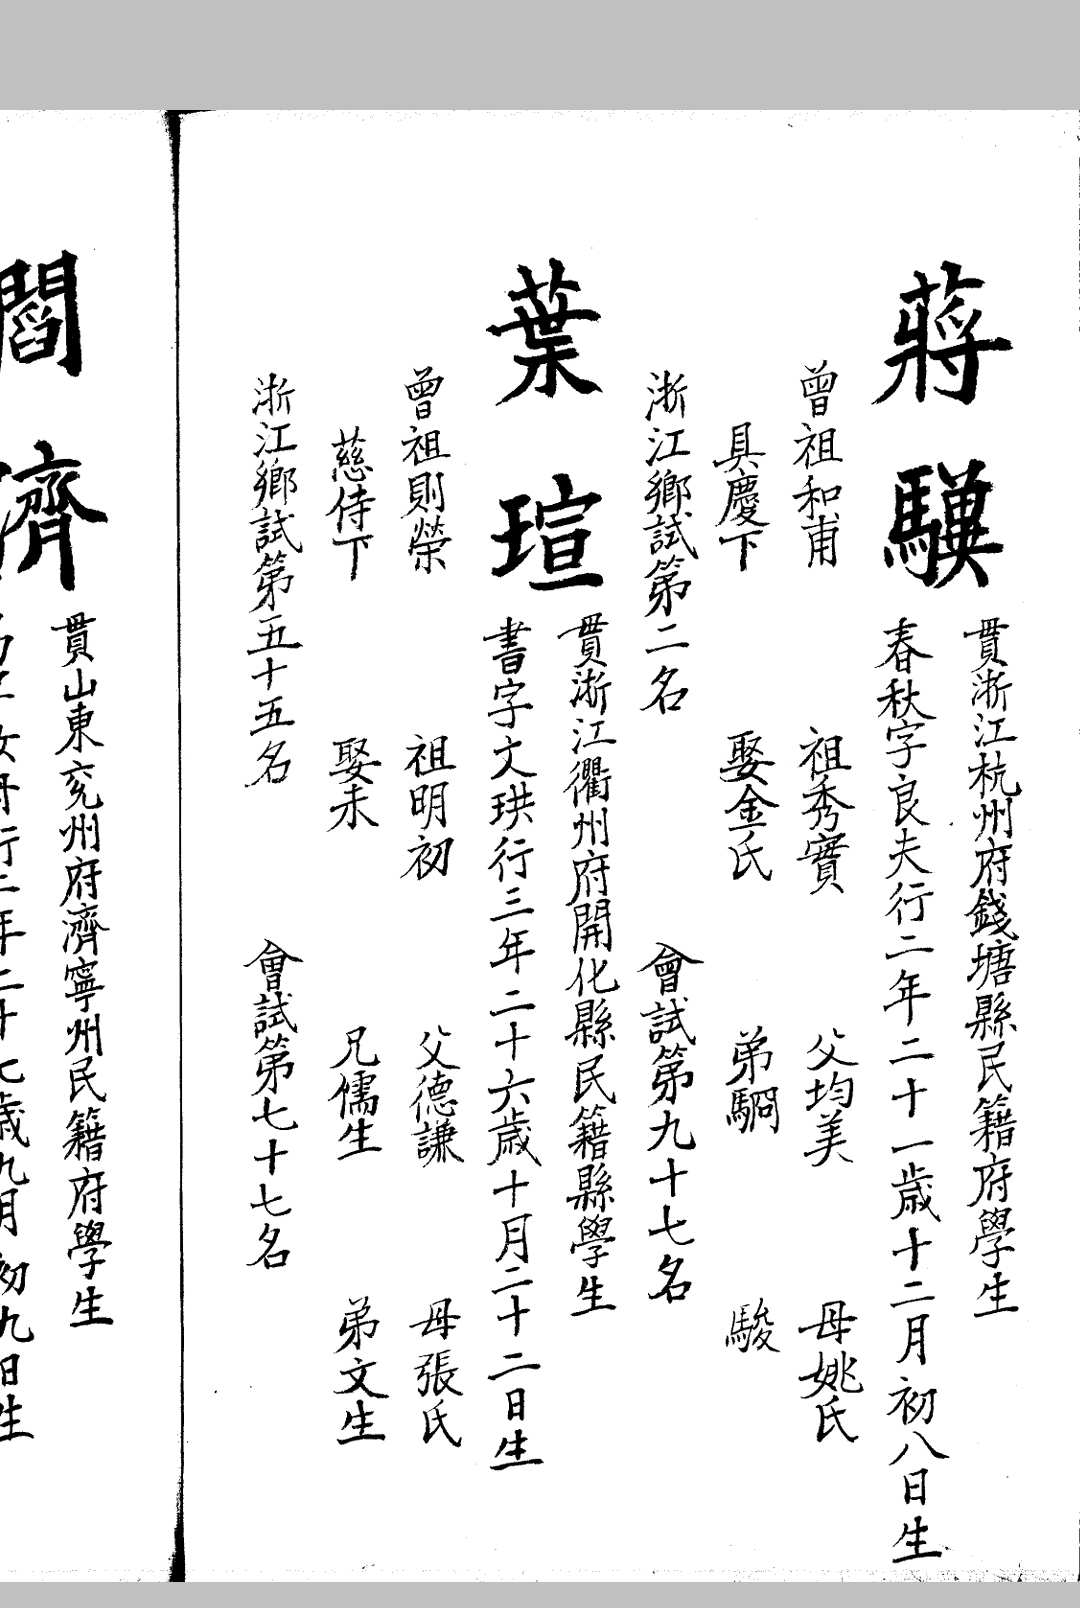 蔣驥
貫浙江杭州府錢塘縣民籍府學生
春秋字良夫行二年二十一歲十二月初八日生
曾祖和甫 祖秀實 父均美 母姚氏
具慶下 娶金氏 弟駉 駿
浙江鄉試第二名 會試第九十七名
葉瑄
貫浙江衢州府開化縣民籍縣學生
書字文珙行三年二十六歲十月二十二日生
曾祖則榮 祖明初 父德謙 母張氏
慈侍下 娶未 兄儒生 弟文生
浙江鄉試第五十五名 會試第七十七名
閻濟
貫山東兖州府濟寧州民籍府學生
行二年二十七歲九月初九日生